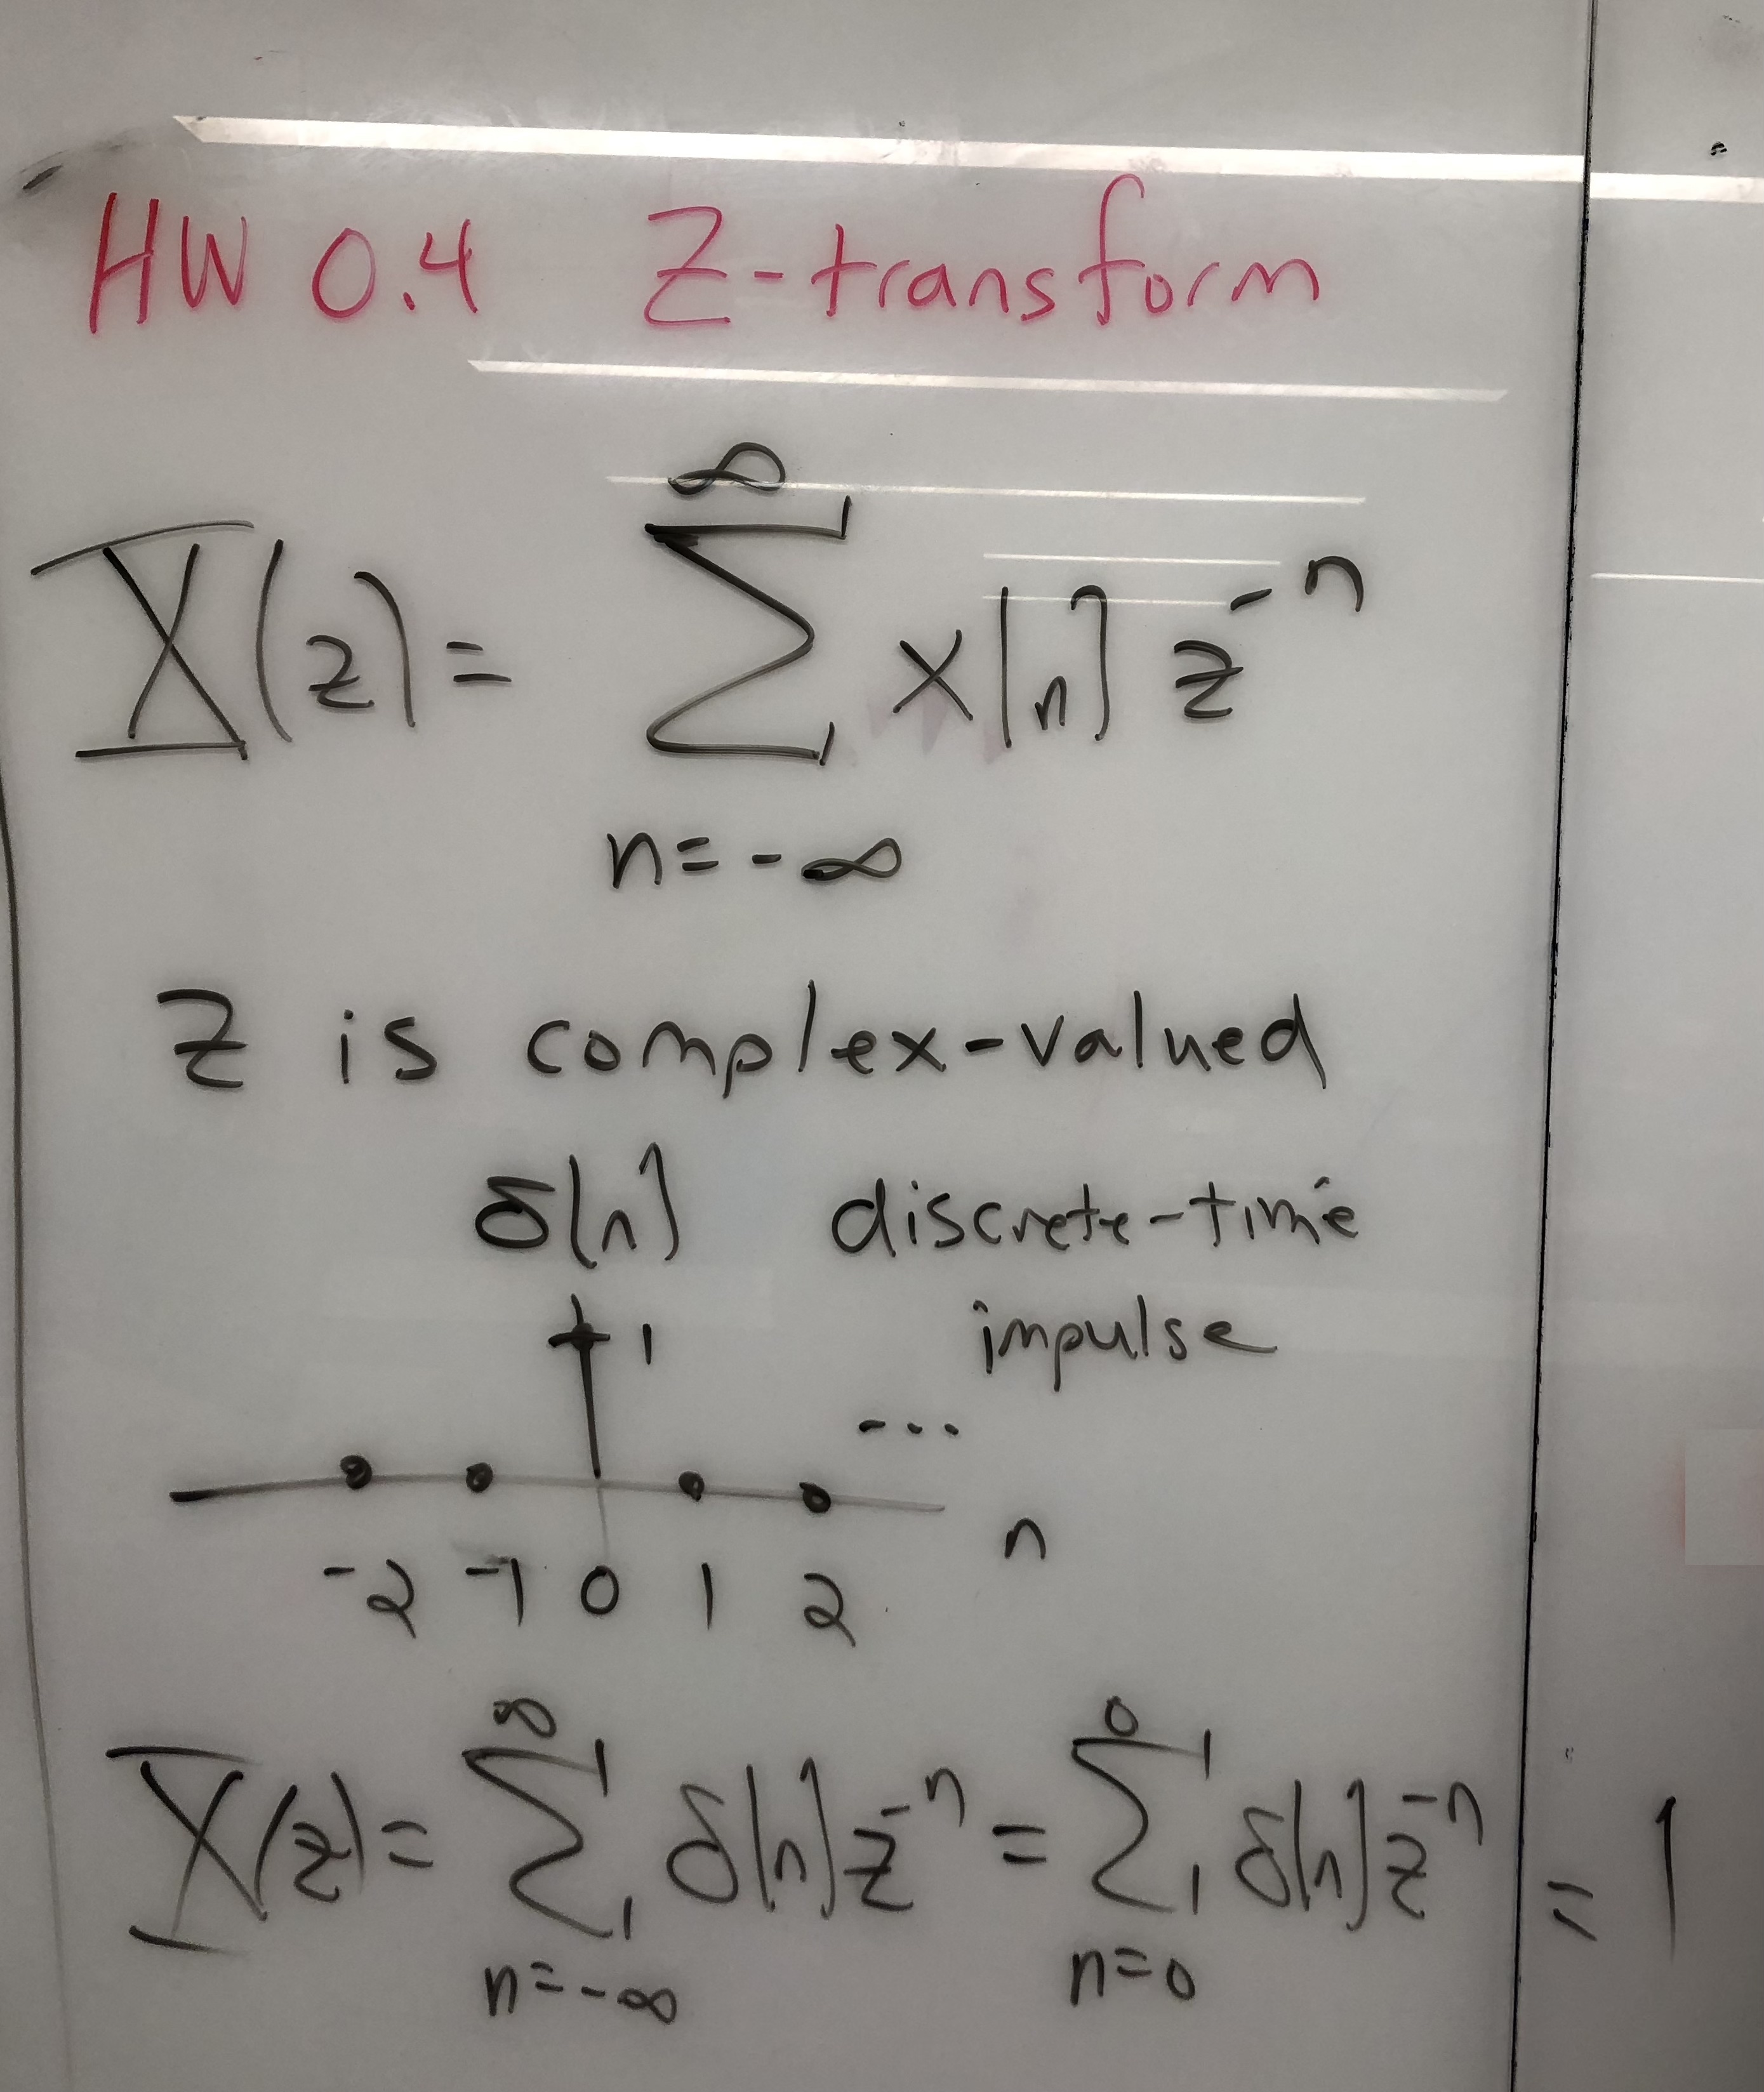 HW 0.4 Z-transform
∞
X(z) = Σ x[n] z⁻ⁿ
n=-∞
z is complex-valued
δ[n] discrete-time
1 impulse
...
n
-2 -1 0 1 2
∞ 0
X(z) = Σ δ[n] z⁻ⁿ = Σ δ[n] z⁻ⁿ = 1
n=-∞ n=0